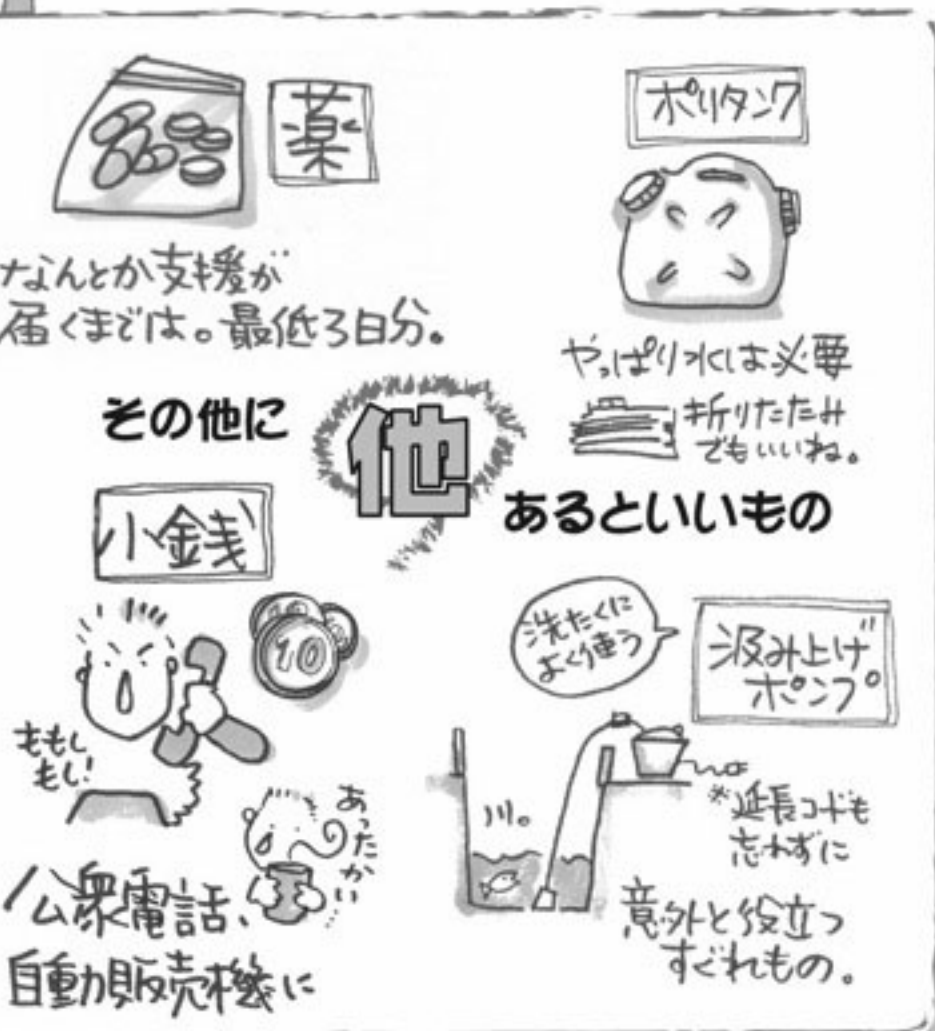 薬
なんとか支援が
届くまでは。最低3日分。
ポリタンク
やっぱり水は必要
折りたたみ
でもいいね。
その他に
他
あるといいもの
小金銭
10
10
ももし
もし!
あったかい…
公衆電話、
自動販売機に
洗たくに
よく使う
汲み上げ
ポンプ
川。
※延長コードも
忘れずに
意外と役立つ
すぐれもの。